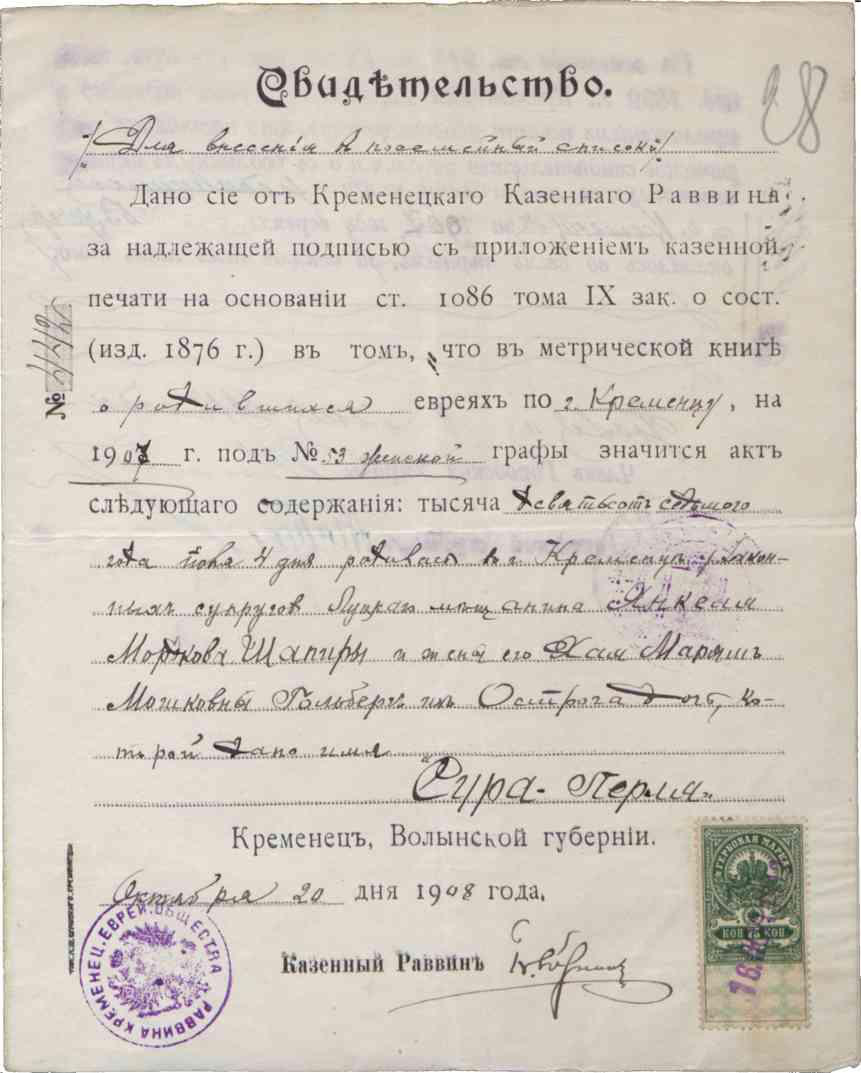 28
Свидѣтельство.
/Для внесенія в посемейный списокъ/
Дано сіе отъ Кременецкаго Казеннаго Раввина
за надлежащей подписью съ приложеніемъ казенной
печати на основаніи ст. 1086 тома IX зак. о сост.
(изд. 1876 г.) въ томъ, что въ метрической книгѣ
№
о родившихся евреяхъ по г. Кременцу, на
1907 г. подъ № 53 женской графы значится актъ
слѣдующаго содержанія: тысяча девятьсотъ седьмого
года 4 дня родилась в г. Кременцѣ у закон-
ныхъ супруговъ Луцкаго мѣщанина Янкеля
Мордкова Шапиры и жены его Хаи Маріямъ
Мошковны Гольберг изъ Острога дочь, ко-
торой дано имя
„Сура-Перля„
Кременецъ, Волынской губерніи.
Октября 20 дня 1908 года.
Казенный Раввинъ
РАВВИНА КРЕМЕНЕЦ. ЕВРЕЙ. ОБЩЕСТВА
ГЕРБОВАЯ МАРКА
КОП 75 КОП